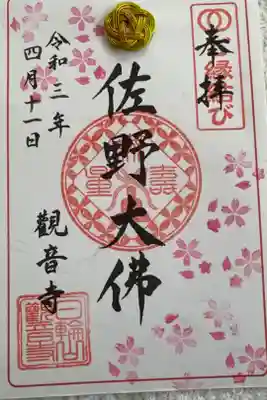 奉拝
縁結び
佐野大佛
令和三年
四月十一日
觀音寺